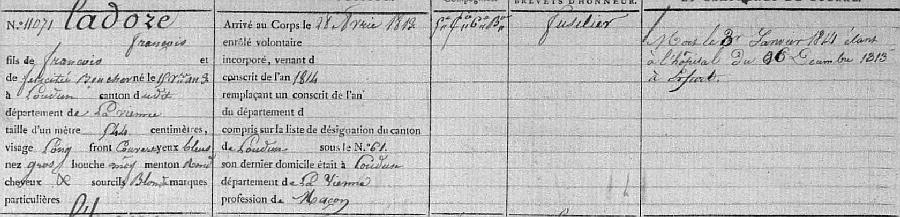 BREVETS D'HONNEUR.
N.° 11071 Ladoze
François
fils de françois et
de félicité Bouchor né le
à Loudun canton dudt
département de La Vienne
taille d'un mètre 544 centimètres,
visage Long front Couvert yeux bleus
nez gros bouche moy menton rond
cheveux & sourcils Blonds marques
particulières
Arrivé au Corps le 28 Avril 1813
enrôlé volontaire
incorporé, venant d
conscrit de l'an 1814
remplaçant un conscrit de l'an
du département d
compris sur la liste de désignation du canton
de Loudun sous le N.° 61.
son dernier domicile était à Loudun
département de La Vienne
profession de Maçon
fuselier
Mort le 3r Janvier 1814 étant
à l'hôpital du 16 Décembre 1813
à Erfurt.